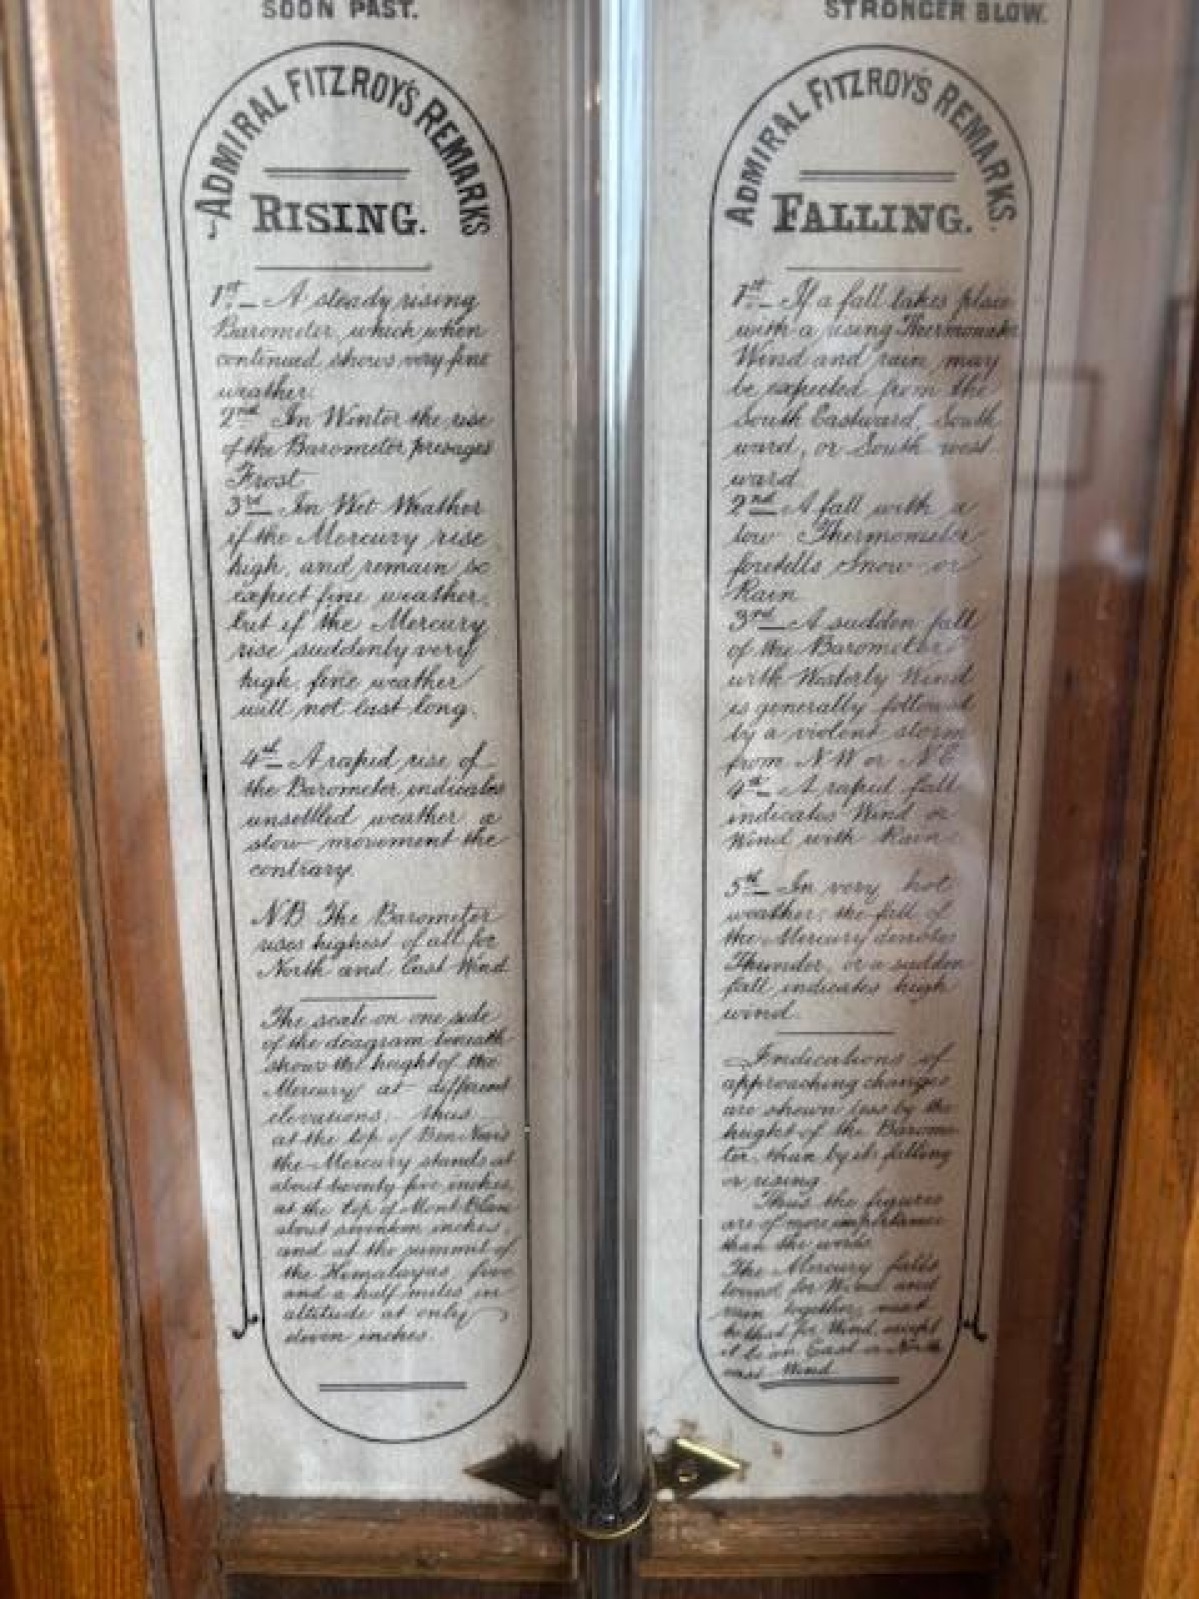 SOON PAST.
STRONGER BLOW.
ADMIRAL FITZROY'S REMARKS
RISING.
1st. — A steady rising
Barometer, which when
continued shows very fine
weather.
2nd In Winter the rise
of the Barometer presages
Frost
3rd — In Wet Weather
if the Mercury rise
high, and remain so
expect fine weather,
but if the Mercury
rise suddenly very
high, fine weather
will not last long.
4th — A rapid rise of
the Barometer indicates
unsettled weather, a
slow movement the
contrary.
NB. The Barometer
rises highest of all for
North and East Wind
The scale on one side
of the deagram beneath
shows the height of the
Mercury at different
elevations, thus
at the top of Ben Nevis
the Mercury stands at
about twenty five inches,
at the top of Mont Blanc
about seventeen inches,
and at the summit of
the Himalayas, five
and a half miles in
altitude at only
eleven inches.
ADMIRAL FITZROY'S REMARKS.
FALLING.
1st. — If a fall takes place
with a rising Thermometer
Wind and rain may
be expected from the
South Eastward, South
ward, or South west
ward.
2nd A fall with a
low Thermometer
foretells Snow or
Rain
3rd — A sudden fall
of the Barometer
with Westerly Wind
is generally followed
by a violent storm
from N.W or N.E.
4th — A rapid fall
indicates Wind or
Wind with Rain
5th — In very hot
weather, the fall of
the Mercury denotes
Thunder, or a sudden
fall indicates high
wind.
Indications of
approaching changes
are shown less by the
height of the Barome
ter, than by its falling
or rising
Thus the figures
are of more importance
than the words.
The Mercury falls
lowest for Wind and
rain together, next
to that for Wind, except
it be on East or North
east Wind